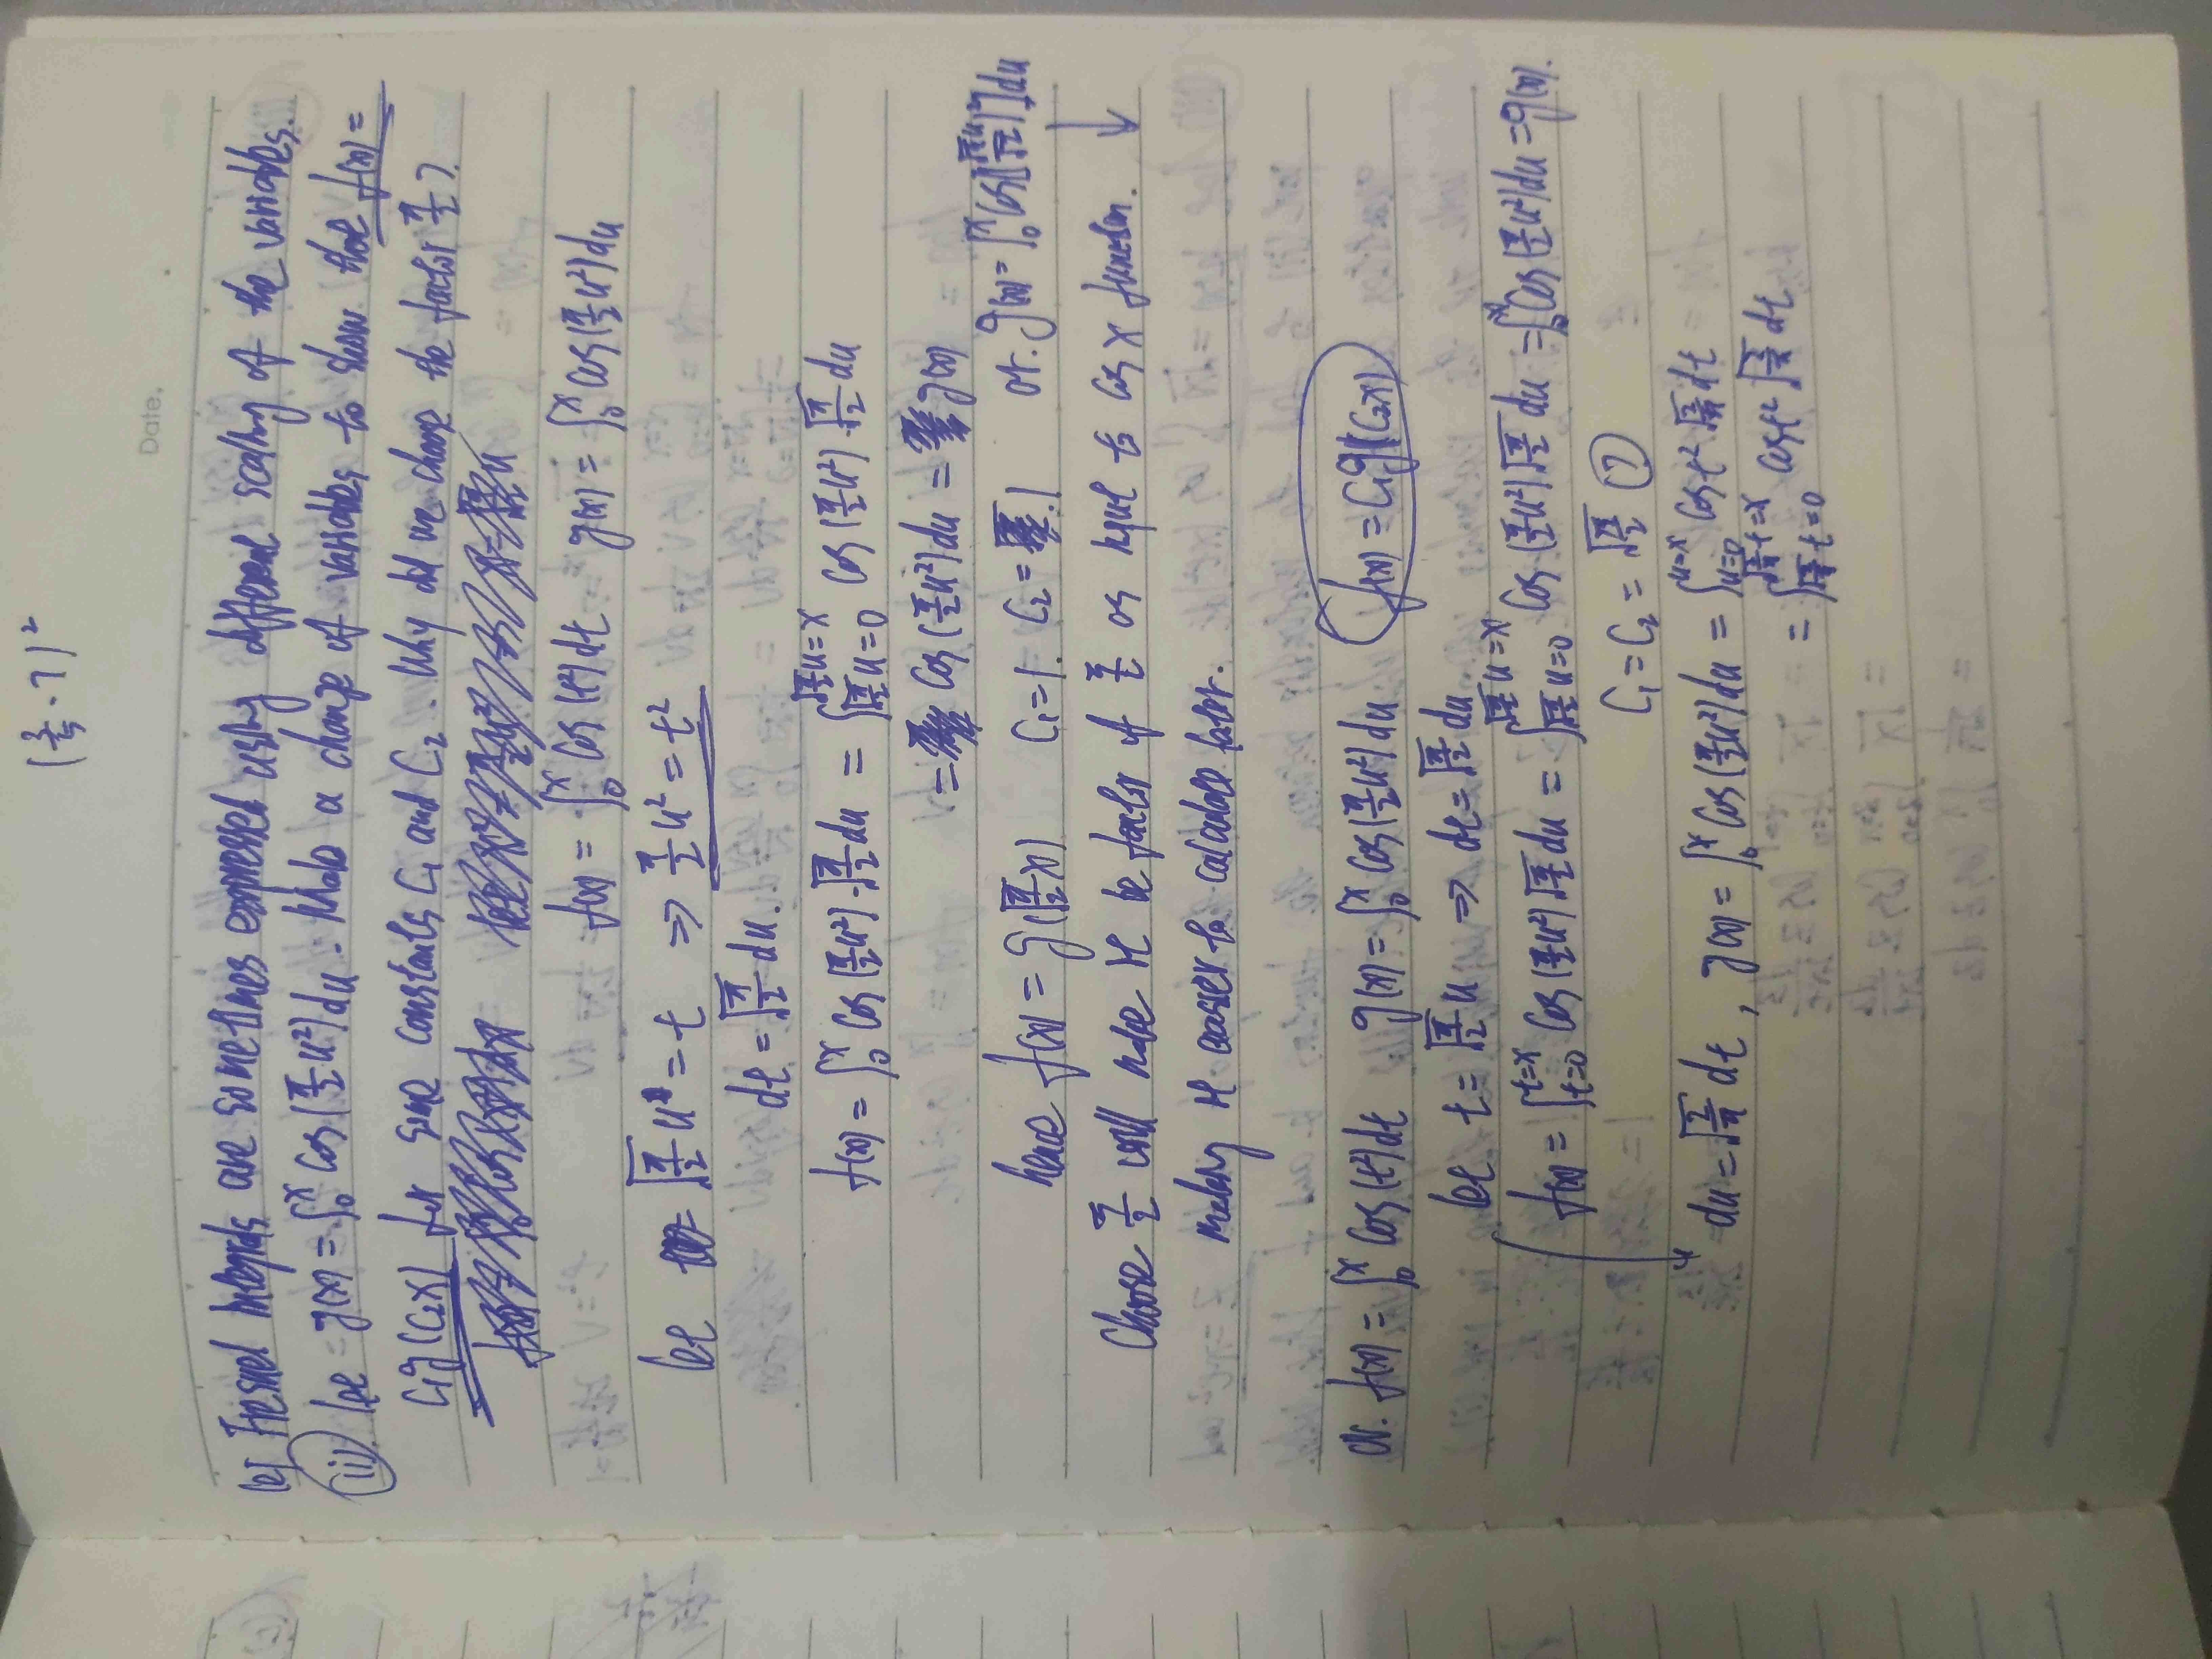 (2/5 · 7)²
Date.
(e) Fresnel integrals are sometimes expressed using different scaling of the variables.
(ii) let = g(x) = ∫₀ˣ cos(π/2 u²)du. Make a change of variables to show that f(x) =
C₁g(C₂x) for some constants C₁ and C₂. Why did we choose the factor π/2?
f(x) = ∫₀ˣ cos(t²)dt g(x) = ∫₀ˣ cos(π/2 u²)du
let √(π/2) u = t ⇒ π/2 u² = t²
dt = √(π/2) du.
f(x) = ∫₀ˣ cos(π/2 u²)·√(π/2) du = ∫_{√(π/2)u=0}^{√(π/2)u=x} cos(π/2 u²)·√(π/2) du
= cos(π/2 u²)du = g(x)
here f(x) = g(√(π/2) x) C₁=1. C₂ = 1 or. g(x) = ∫₀ˣ cos[(√(π/2) u)²]du
Choose π/2 will make it be factor of π/2 as input to cos x function. ↓
making it easier to calculate later.
or. f(x) = ∫₀ˣ cos(t²)dt g(x) = ∫₀ˣ cos(π/2 u²)du f(x) = C₁g(C₂x)
let t = √(π/2) u ⇒ dt = √(π/2) du
f(x) = ∫_{t=0}^{t=x} cos(π/2 u²)√(π/2) du = ∫_{√(π/2)u=0}^{√(π/2)u=x} cos(π/2 u²)√(π/2) du = ∫₀ˣ cos(π/2 u²)du = g(x).
C₁ = C₂ = √(π/2) (?)
du = √(2/π) dt, g(x) = ∫₀ˣ cos(π/2 u²)du = ∫_{u=0}^{u=x} cos t² √(2/π) dt
= ∫_{√(2/π)t=0}^{√(2/π)t=x} cos t² √(2/π) dt